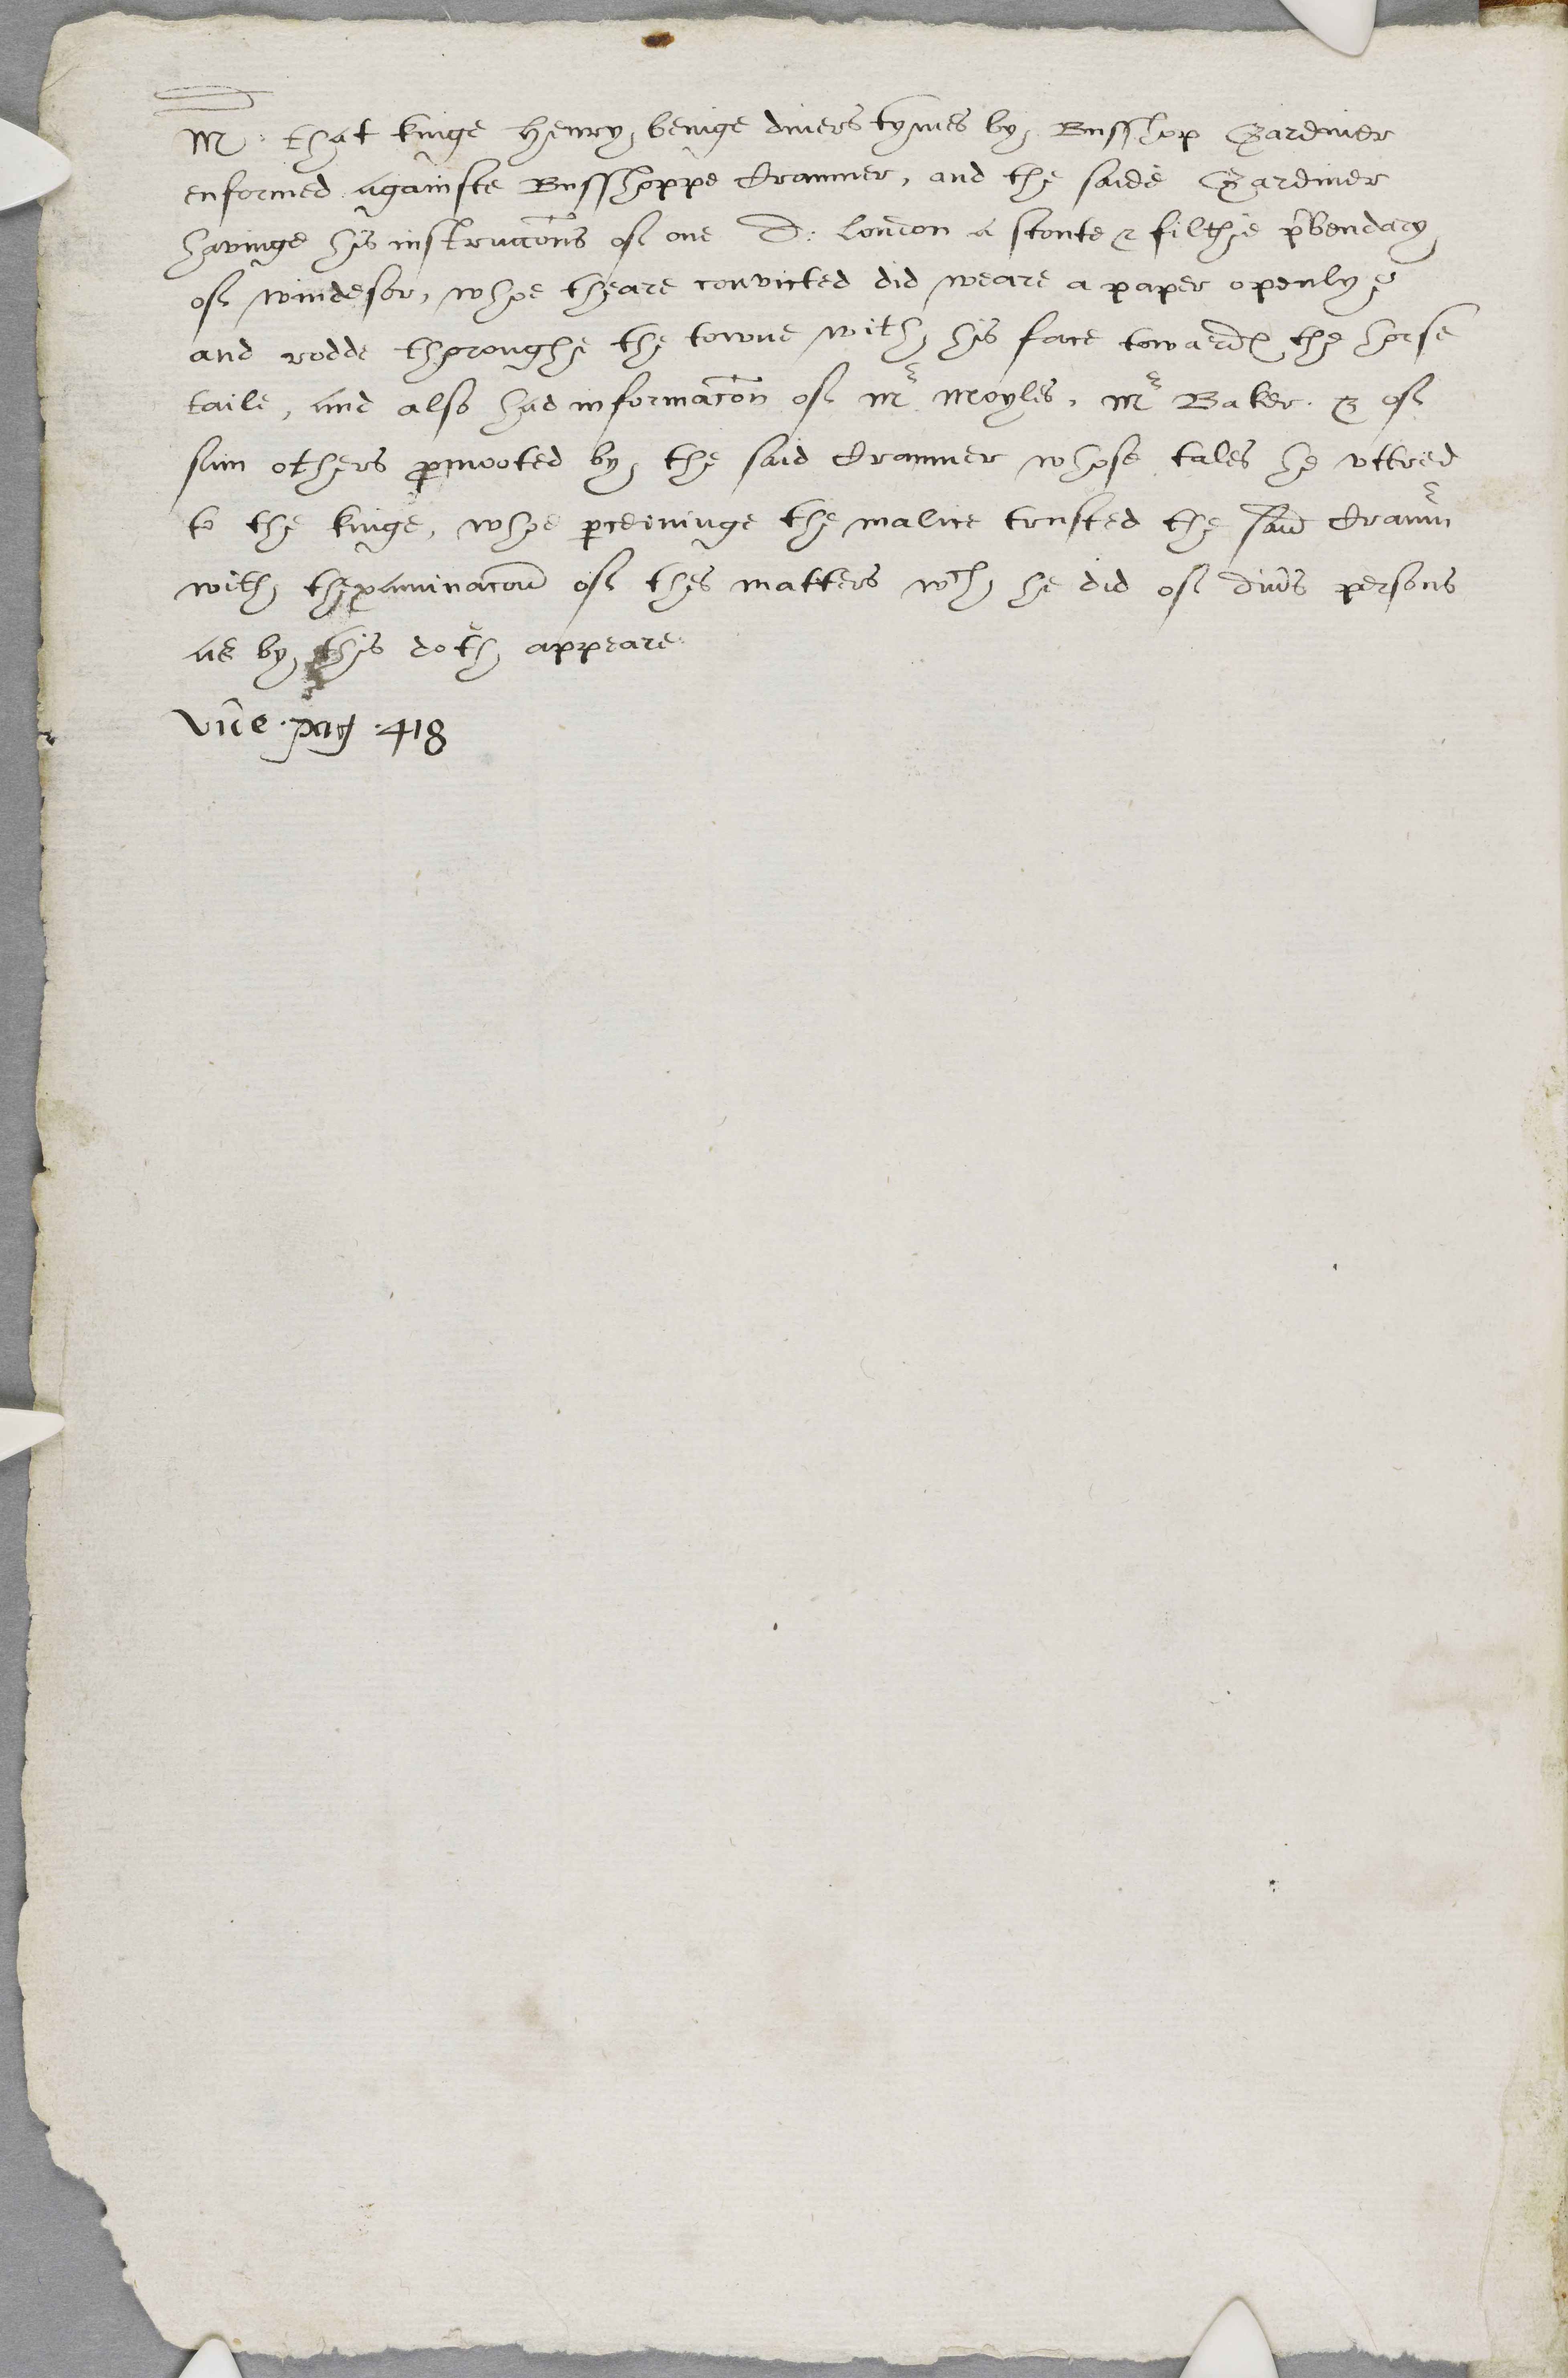 M: that kinge Henry beinge divers tymes by Busshop Gardiner
enformed againste Busshoppe Cranmer, and the saide Gardiner
havinge his instruccōns of one D: London a stoute & filthie p̄bendary
of windesor, whoe theare convicted did weare a paper openlye
and rodde thoroughe the towne with his face towardꝭ the horse
taile, and also had informacōn of Mr Moyles, Mr Baker. & of
sum others ꝓmooted by the said Cranmer whose tales he vttred
to the kinge, whoe ꝑceivinge the malice trusted the said Cranm̄
with thexaminacōn of thes matters wch he did of div̄s persons
as by this doth appeare.
Vide. pag. 418